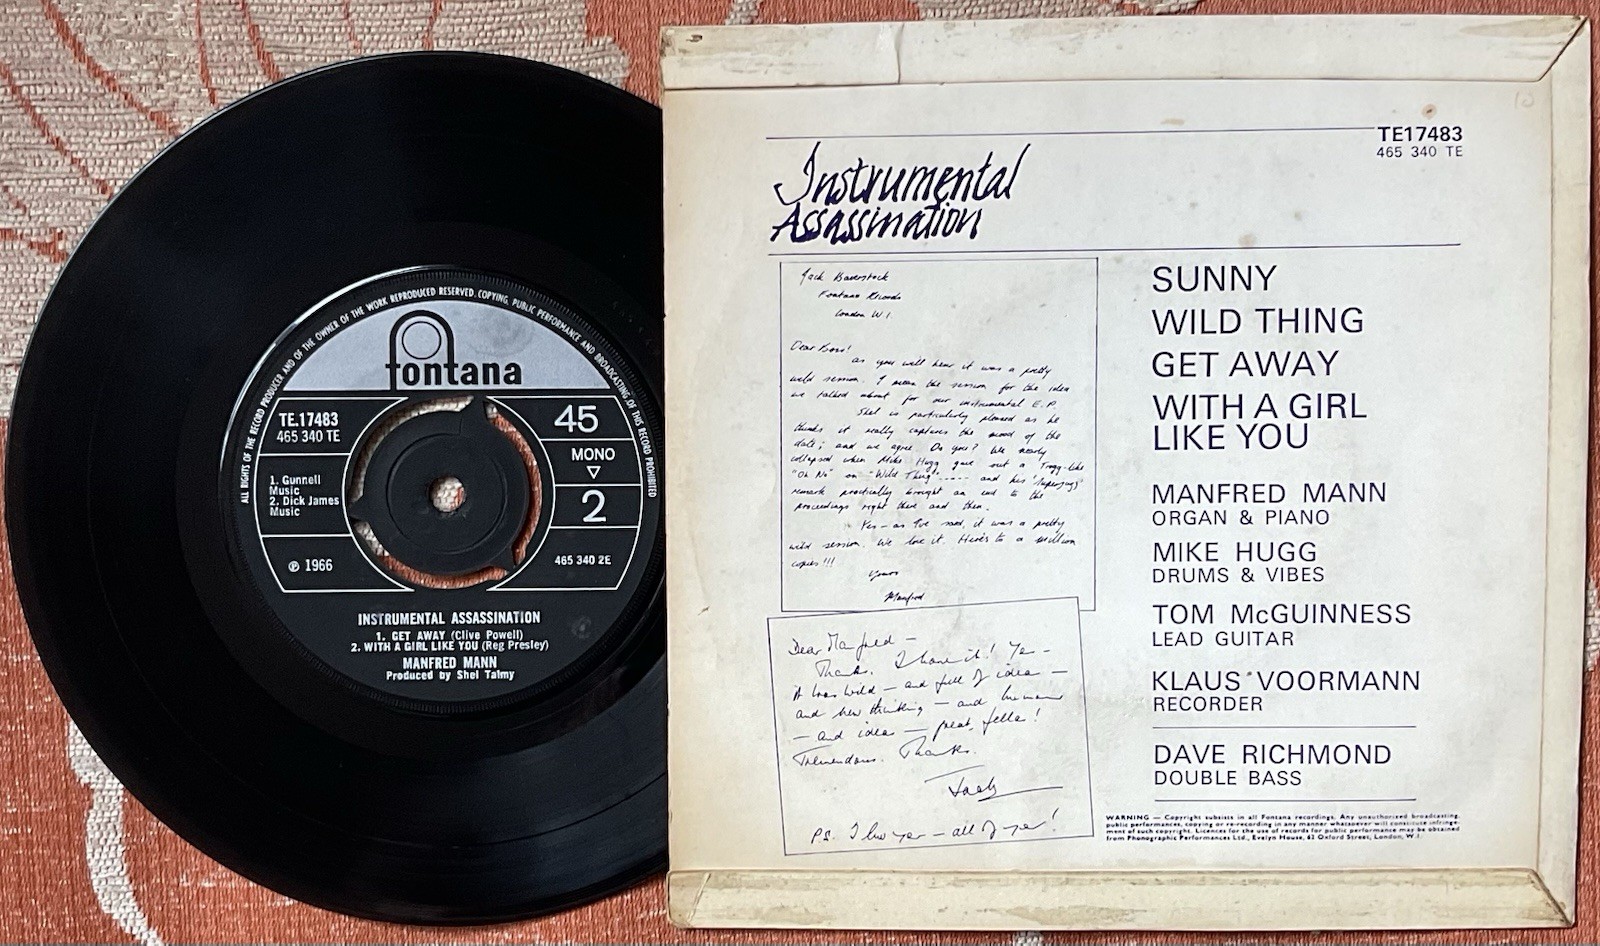 ALL RIGHTS OF THE RECORD PRODUCER AND OF THE OWNER OF THE WORK REPRODUCED RESERVED. COPYING, PUBLIC PERFORMANCE AND BROADCASTING OF THIS RECORD PROHIBITED
fontana
TE.17483
465 340 TE
1. Gunnell
Music
2. Dick James
Music
℗ 1966
45
MONO
2
465 340 2E
INSTRUMENTAL ASSASSINATION
1. GET AWAY (Clive Powell)
2. WITH A GIRL LIKE YOU (Reg Presley)
MANFRED MANN
Produced by Shel Talmy
10
TE17483
465 340 TE
Instrumental
Assassination
Jack Baverstock
Fontana Records
London W.1.
Dear Boss!
as you will hear it was a pretty
wild session. I mean the session for the idea
we talked about for our instrumental E.P.
Shel is particularly pleased as he
thinks it really captures the mood of the
date; and we agree. Do you? We nearly
collapsed when Mike Hugg gave out a Trogg-like
"Oh No" on "Wild Thing"----- and his
remark practically brought an end to the
proceedings right there and then.
Yes - as I've said, it was a pretty
wild session. We love it. Here's to a million
copies!!!
Yours
Manfred
Dear Manfred —
Thanks. I have it! Yes -
it was wild — and full of ideas —
and new thinking — and humour
— and ideas — great, fellas!
Tremendous. Thanks.
Jack
P.S. I love you — all of you!
SUNNY
WILD THING
GET AWAY
WITH A GIRL
LIKE YOU
MANFRED MANN
ORGAN & PIANO
MIKE HUGG
DRUMS & VIBES
TOM McGUINNESS
LEAD GUITAR
KLAUS VOORMANN
RECORDER
DAVE RICHMOND
DOUBLE BASS
WARNING — Copyright subsists in all Fontana recordings. Any unauthorized broadcasting,
public performance, copying or re-recording in any manner whatsoever will constitute infringe-
ment of such copyright. Licences for the use of records for public performance may be obtained
from Phonographic Performances Ltd., Evelyn House, 62 Oxford Street, London, W.1.